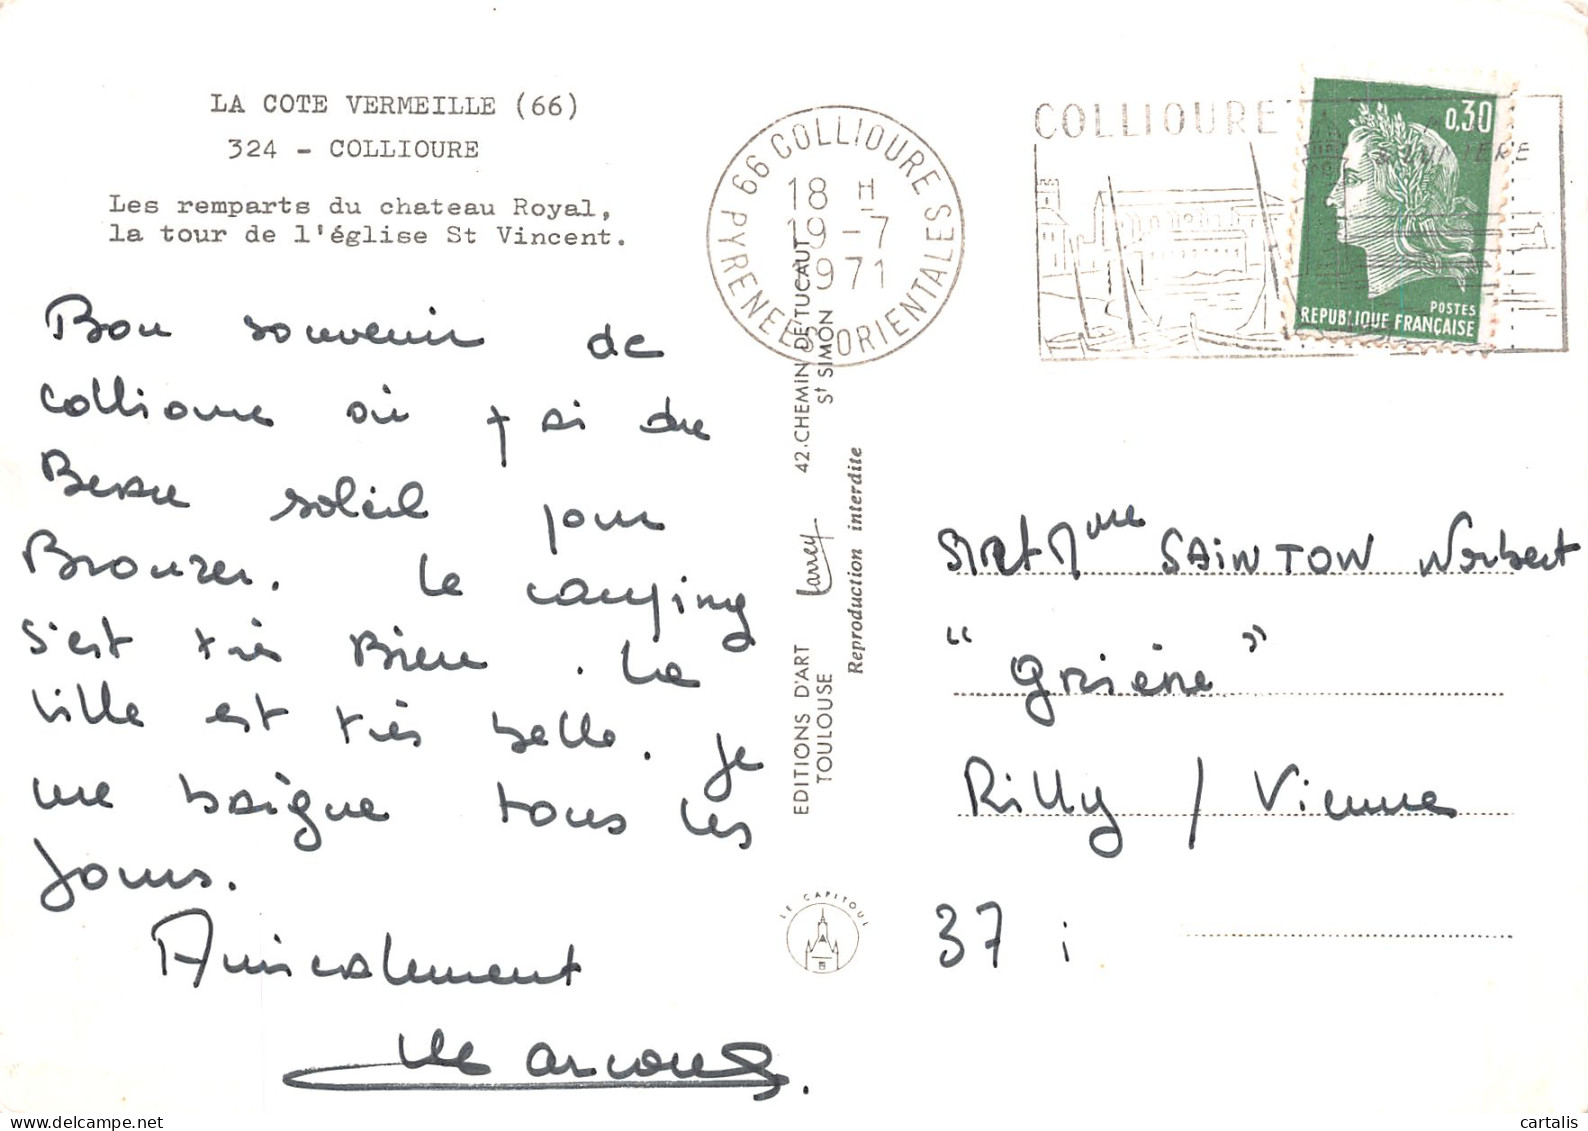 LA COTE VERMEILLE (66)
324 - COLLIOURE
Les remparts du chateau Royal,
la tour de l'église St Vincent.
Bon souvenir de
Collioure où j'ai du
Beau soleil pour
Bronzer. Le camping
s'est très Bien. La
ville est très belle. Je
me baigne tous les
jours.
Amicalement
66 COLLIOURE
18 H
19-7
1971
PYRENEES ORIENTALES
COLLIOURE
LUMIERE
0,30
POSTES
REPUBLIQUE FRANÇAISE
EDITIONS D'ART Larrey 42.CHEMIN DE TUCAUT
TOULOUSE St SIMON
Reproduction interdite
LE CAPITOUL
Mr et Mme SAINTON Norbert
"Grière"
Rilly / Vienne
37 i
cartalis
delcampe.net